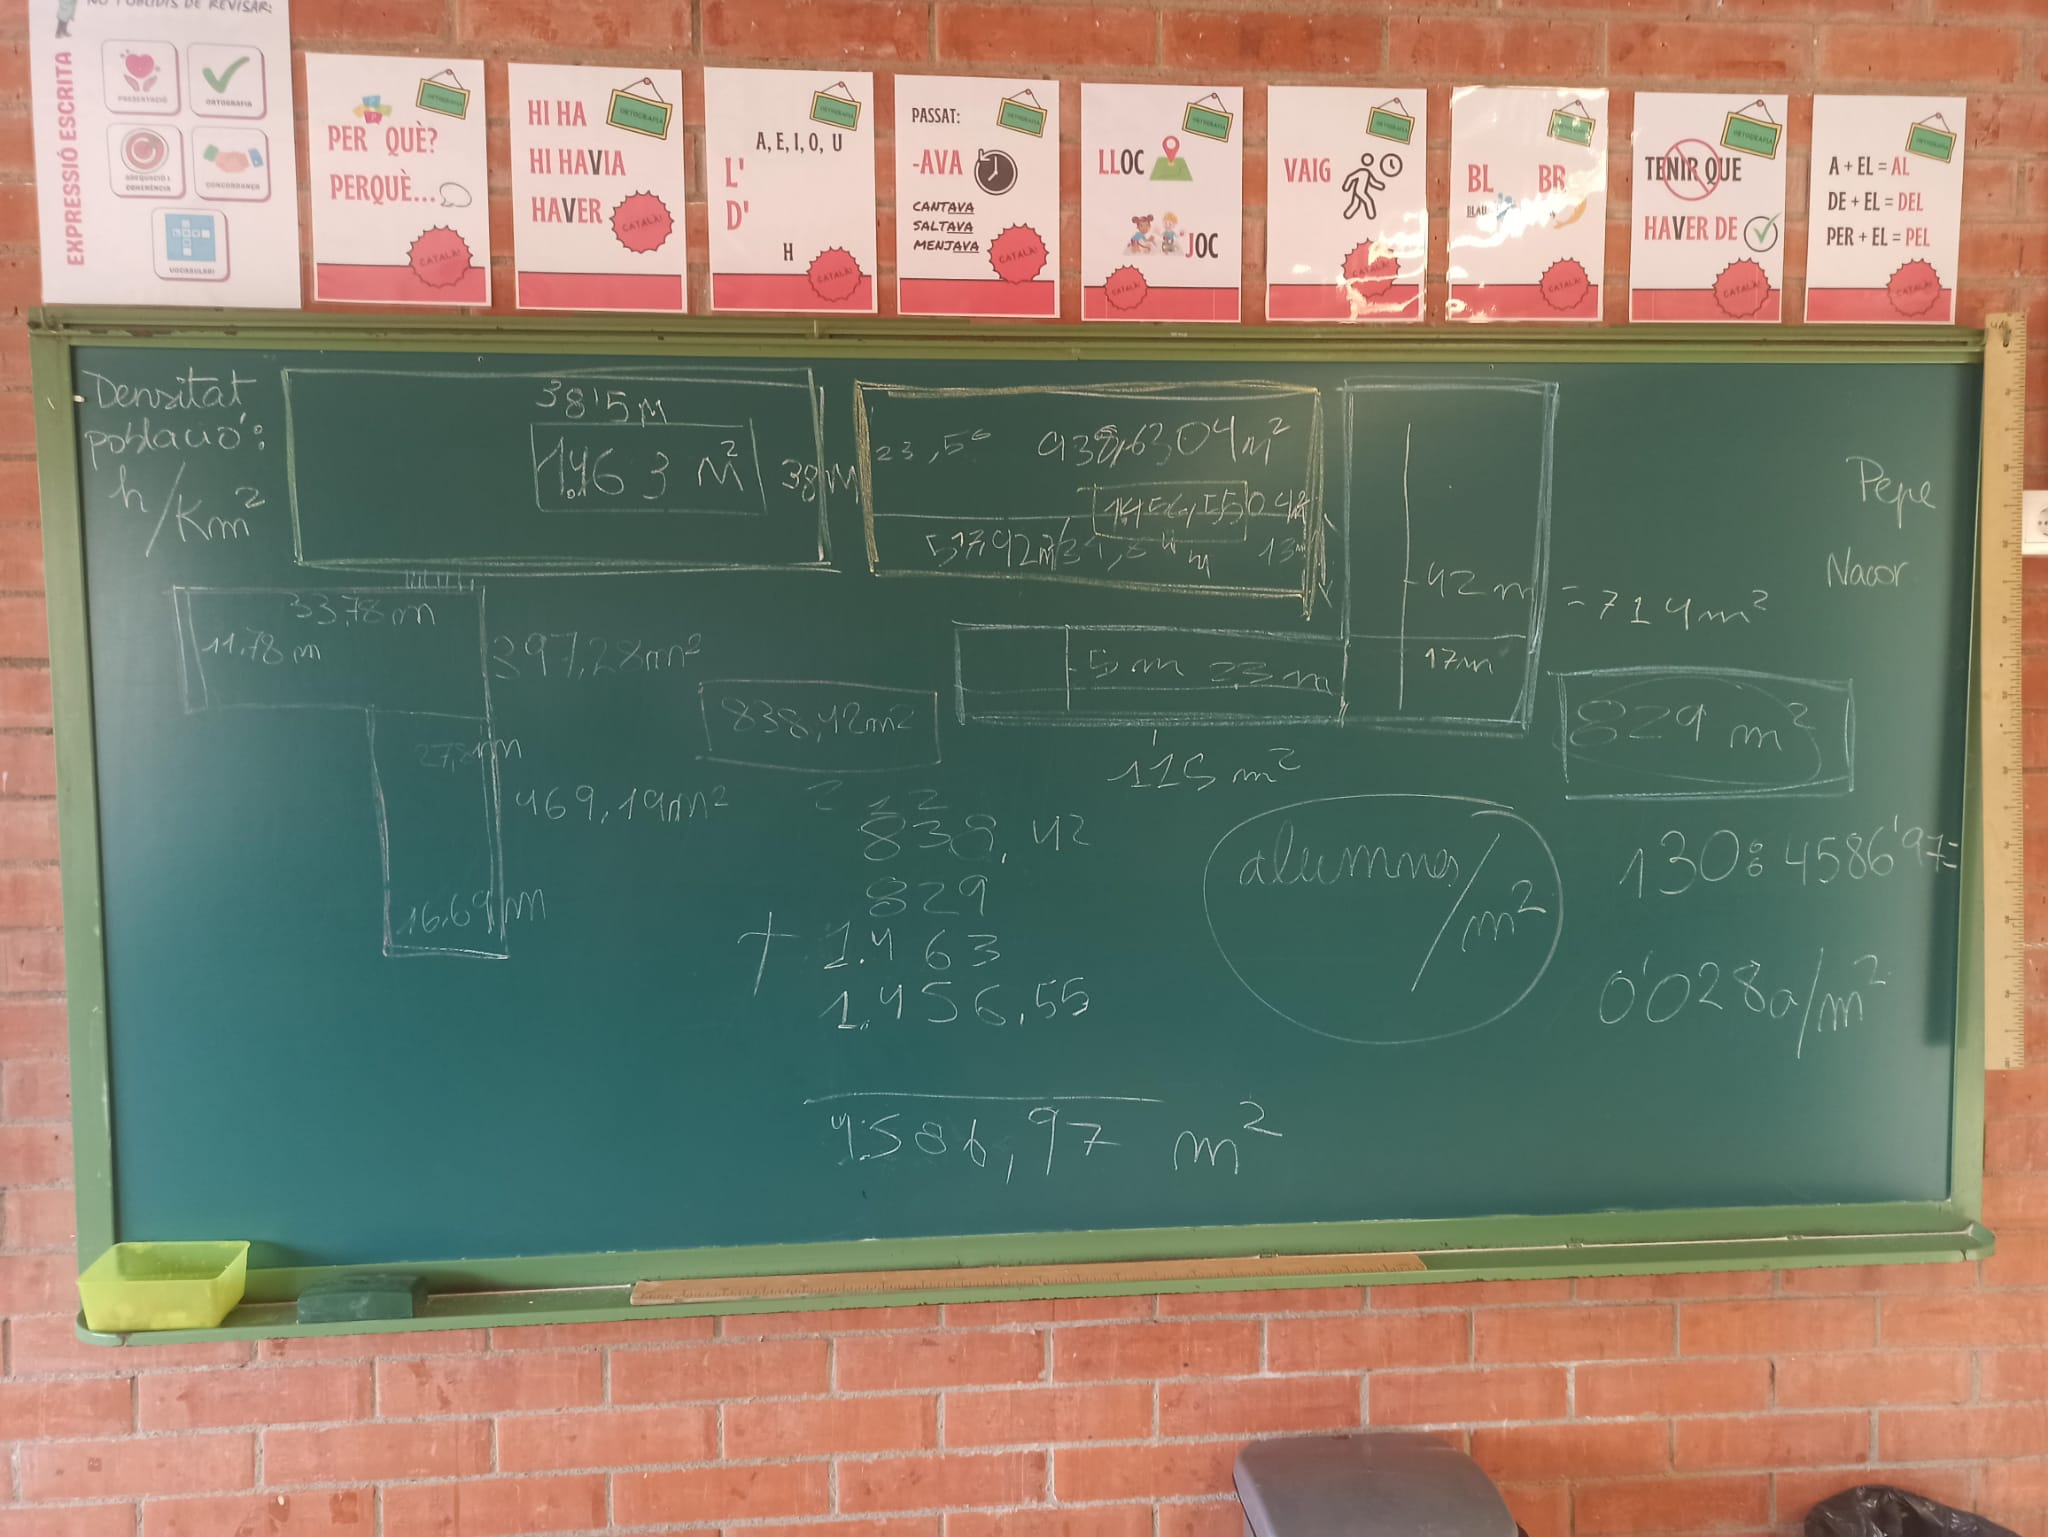 NO T'OBLIDIS DE REVISAR:
EXPRESSIÓ ESCRITA
PRESENTACIÓ
ORTOGRAFIA
ADEQUACIÓ I
COHERÈNCIA
CONCORDANÇA
VOCABULARI
ORTOGRAFIA
PER QUÈ?
PERQUÈ...
CATALÀ!
ORTOGRAFIA
HI HA
HI HAVIA
HAVER
CATALÀ!
ORTOGRAFIA
A, E, I, O, U
L'
D'
H
CATALÀ!
ORTOGRAFIA
PASSAT:
-AVA
CANTAVA
SALTAVA
MENJAVA
CATALÀ!
ORTOGRAFIA
LLOC
JOC
CATALÀ!
ORTOGRAFIA
VAIG
CATALÀ!
ORTOGRAFIA
BL BR
BLAU
CATALÀ!
ORTOGRAFIA
TENIR QUE
HAVER DE
CATALÀ!
ORTOGRAFIA
A + EL = AL
DE + EL = DEL
PER + EL = PEL
CATALÀ!
Densitat
població:
h/Km²
38'5m
1.463 m²
38m
23,56
938,6304m²
517,92m²
13m
42m
= 714m²
17m
5m 23m
115 m²
829 m²
Pepe
Nacor
33,78m
11,78m
397,28m²
469,19m²
16,69m
838,42m²
2 1 2
838,42
829
+ 1.463
1.456,55
4.586,97 m²
alumnes/m²
130:4586'97=
0'028a/m²